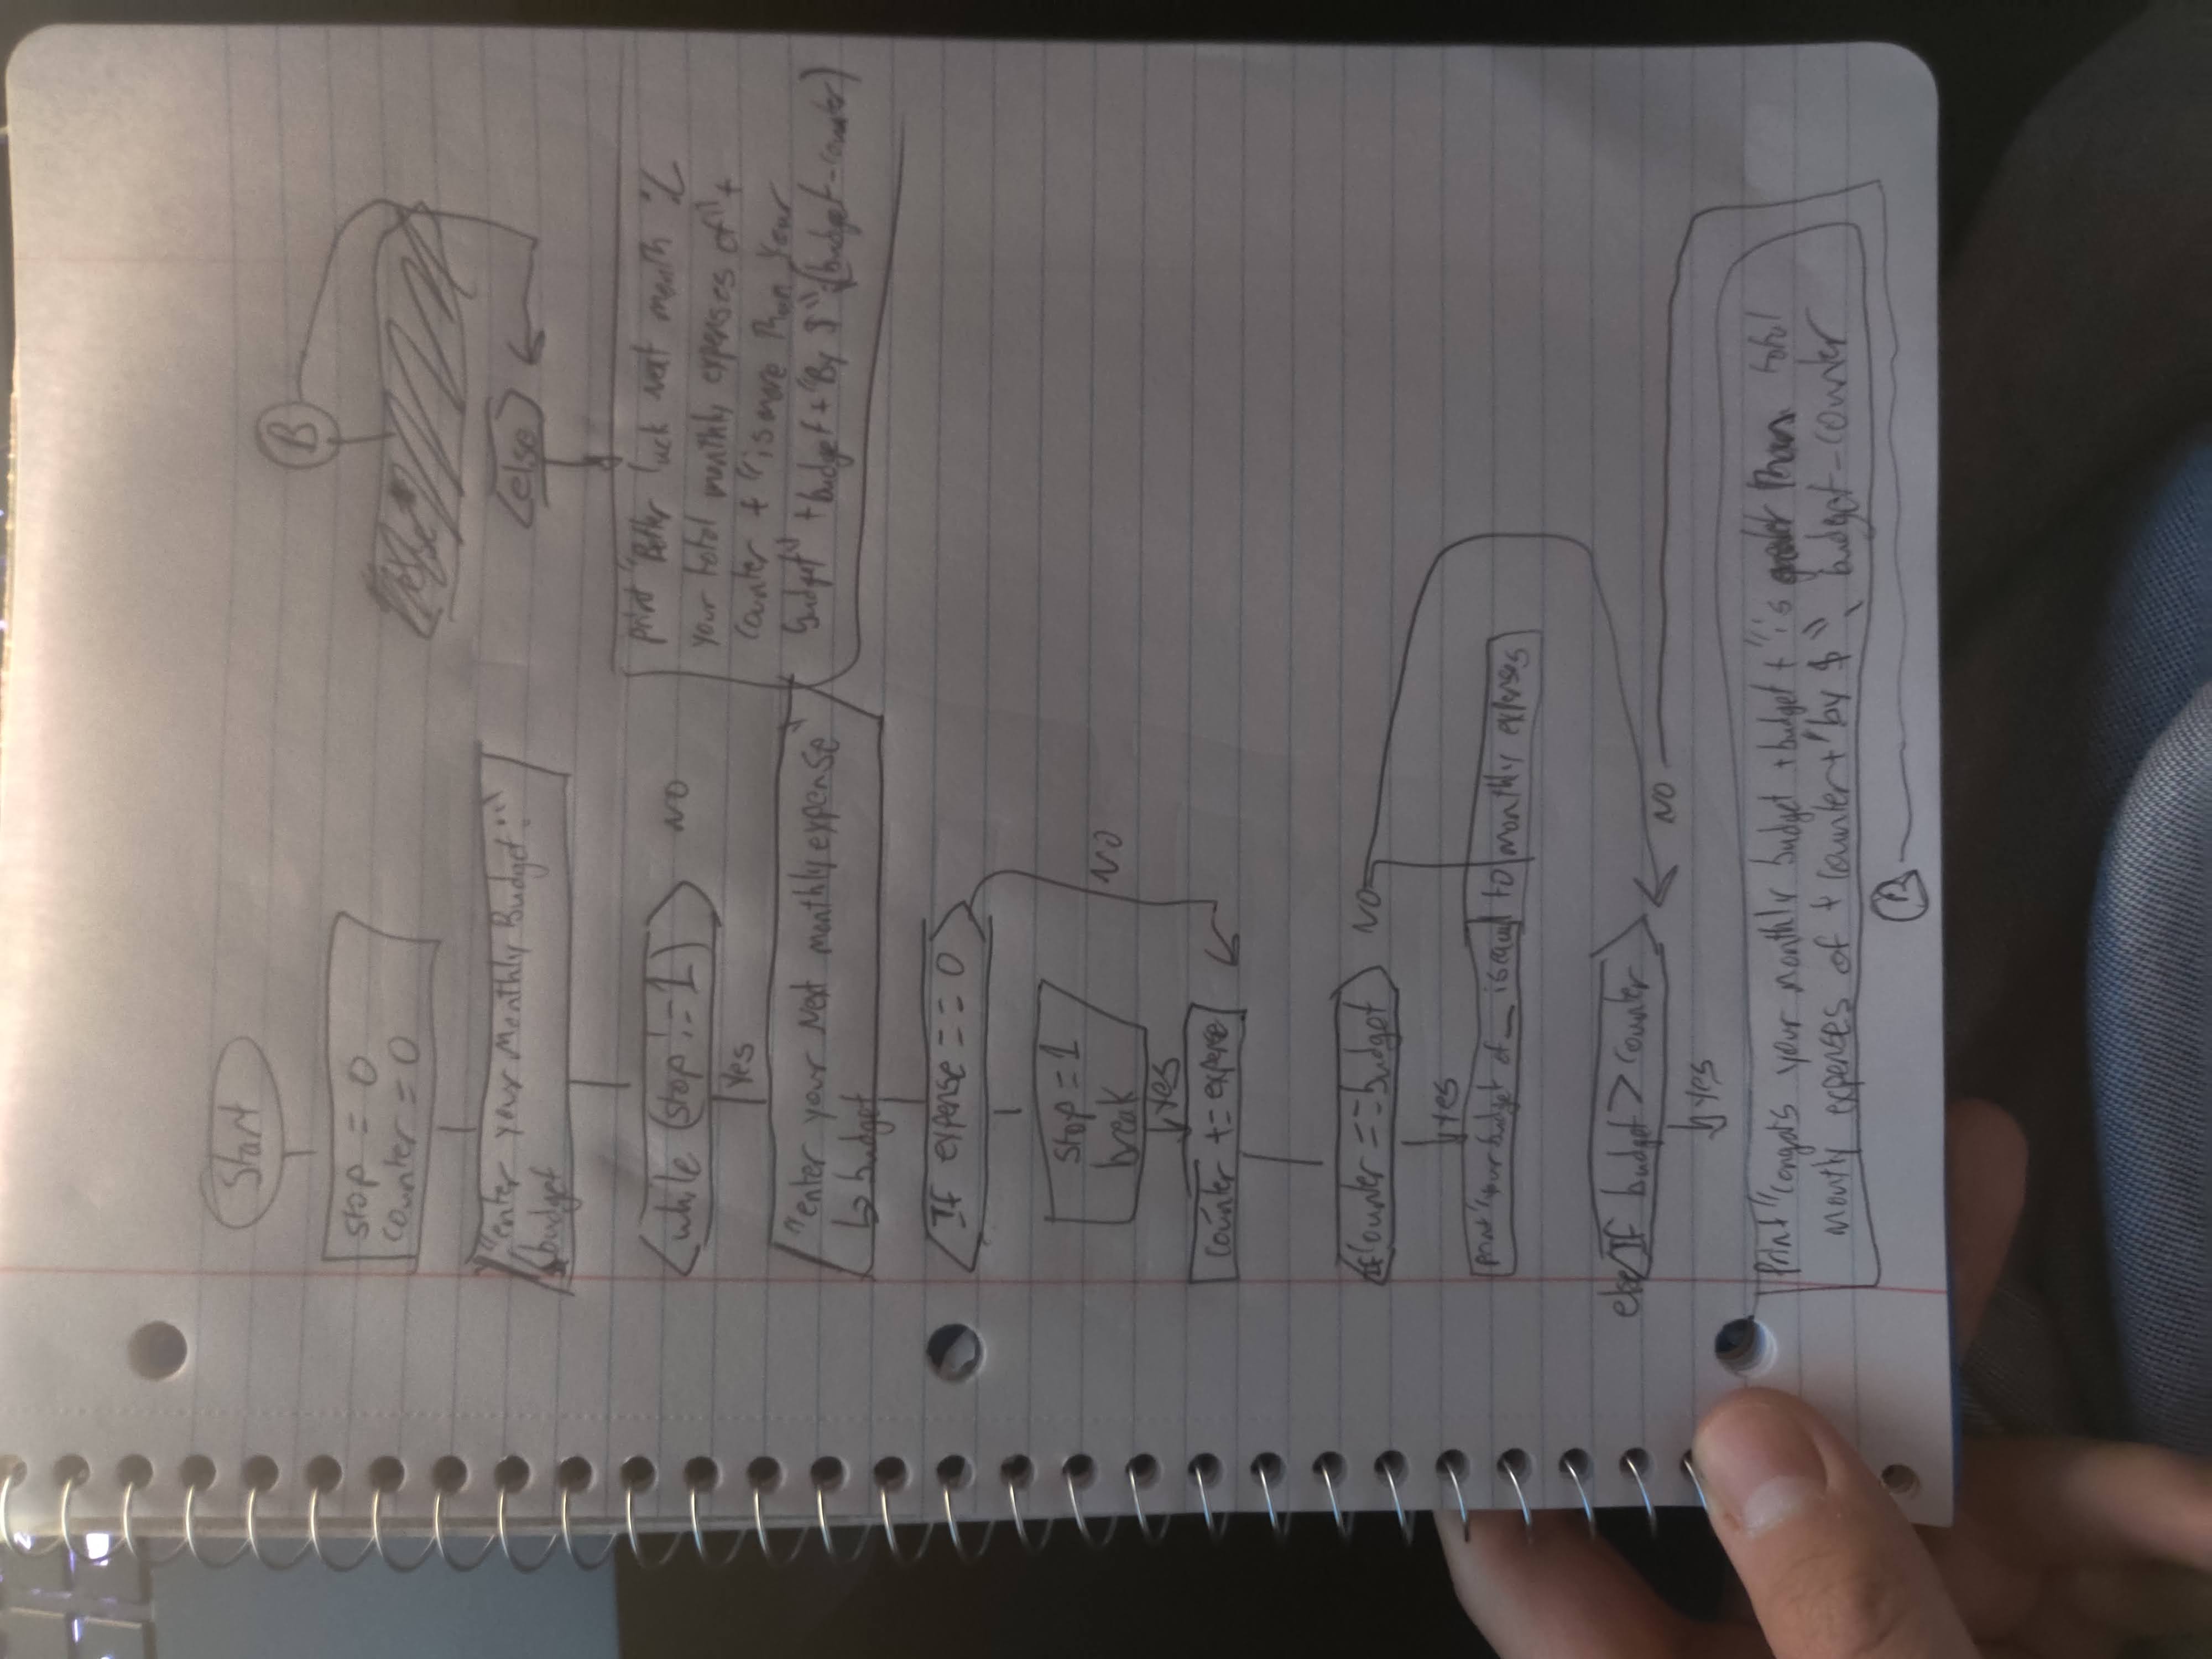 Start
stop = 0
counter = 0
"enter your Monthly Budget:"
budget
while (stop != 1)
NO
Yes
"enter your Next monthly expense"
↳ budget
If expense == 0
stop = 1
break
NO
Yes
counter += expense
If counter == budget
NO
Yes
print "your budget of __ is equal to monthly expenses
else If budget > counter
NO
Yes
print "congats your monthly budget + budget + "is greater than total
montly expenses of + counter + "by $", budget-counter
B
B
else
print "Better luck next month :(
your total monthly expenses of" +
counter + "is more than your
budget" + budget + "By $" (budget-counter)